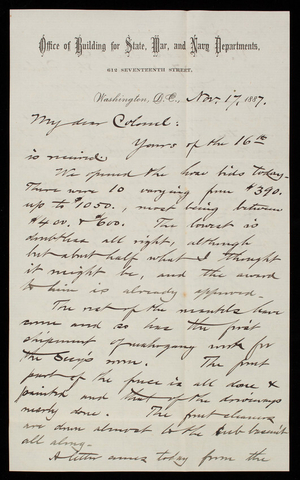 Office of Building for State, War, and Navy Departments,
612 SEVENTEENTH STREET,
Washington, D.C., Nov. 17, 1887.
My dear Colonel:
Yours of the 16th
is received.
We opened the bids today.
There were 10 varying from $390.
up to $1050., most being between
$400. & $600. The lowest is
doubtless all right, although
but about half what I thought
it might be, and the award
to him is already approved.
The rest of the mantels have
come and so has the first
shipment of mahogany work for
the Secy's room. The first
part of the fence is all done &
painted and that of the driveways
nearly done. The
are down almost to the sub basem't
all along.
A letter comes today from the